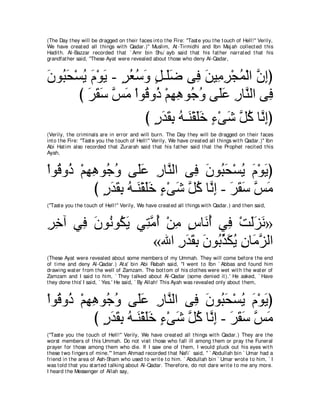 (The Day they will be dragged on their faces into the Fire: "Taste you the touch of Hell!'' Verily,
We have created all things with Qadar.)'' Muslim, At-Tirmidhi and Ibn Majah collected this
Hadith. Al-Bazzar recorded that `Amr bin Shu`ayb said that his father narrated that his
grandfather said, "These Ayat were revealed about those who deny Al-Qadar,
﴿إِنَّ الْمُجْرِمِينَ فِى ضَلَـلٍ وَسُعُرٍ - يَوْمَ يُسْحَبُونَ
فِى النَّارِ عَلَى وُجُوهِهِمْ ذُوقُواْ مَسَّ سَقَرَ ﴾
﴿إِنَّا كُلَّ شَىْءٍ خَلَقْنَـهُ بِقَدَرٍ ﴾
(Verily, the criminals are in error and will burn. The Day they will be dragged on their faces
into the Fire: "Taste you the touch of Hell!'' Verily, We have created all things with Qadar.)'' Ibn
Abi Hatim also recorded that Zurarah said that his father said that the Prophet recited this
Ayah,
﴿يَوْمَ يُسْحَبُونَ فِى النَّارِ عَلَى وُجُوهِهِمْ ذُوقُواْ
مَسَّ سَقَرَ - إِنَّا كُلَّ شَىْءٍ خَلَقْنَـهُ بِقَدَرٍ ﴾
("Taste you the touch of Hell!'' Verily, We have created all things with Qadar.) and then said,
«نَزَلَتْ فِي أُنَاسٍ مِنْ أُمَّتِي يَكُونُونَ فِي آخِرِ
الزَّمَانِ يُكَذِّبُونَ بِقَدَرِ الله»
(These Ayat were revealed about some members of my Ummah. They will come before the end
of time and deny Al-Qadar.) Ata' bin Abi Rabah said, "I went to Ibn `Abbas and found him
drawing water from the well of Zamzam. The bottom of his clothes were wet with the water of
Zamzam and I said to him, `They talked about Al-Qadar (some denied it).' He asked, `Have
they done this' I said, `Yes.' He said, `By Allah! This Ayah was revealed only about them,
﴿يَوْمَ يُسْحَبُونَ فِى النَّارِ عَلَى وُجُوهِهِمْ ذُوقُواْ
مَسَّ سَقَرَ - إِنَّا كُلَّ شَىْءٍ خَلَقْنَـهُ بِقَدَرٍ ﴾
("Taste you the touch of Hell!'' Verily, We have created all things with Qadar.) They are the
worst members of this Ummah. Do not visit those who fall ill among them or pray the Funeral
prayer for those among them who die. If I saw one of them, I would pluck out his eyes with
these two fingers of mine.''' Imam Ahmad recorded that Nafi` said, "`Abdullah bin `Umar had a
friend in the area of Ash-Sham who used to write to him. `Abdullah bin `Umar wrote to him, `I
was told that you started talking about Al-Qadar. Therefore, do not dare write to me any more.
I heard the Messenger of Allah say,